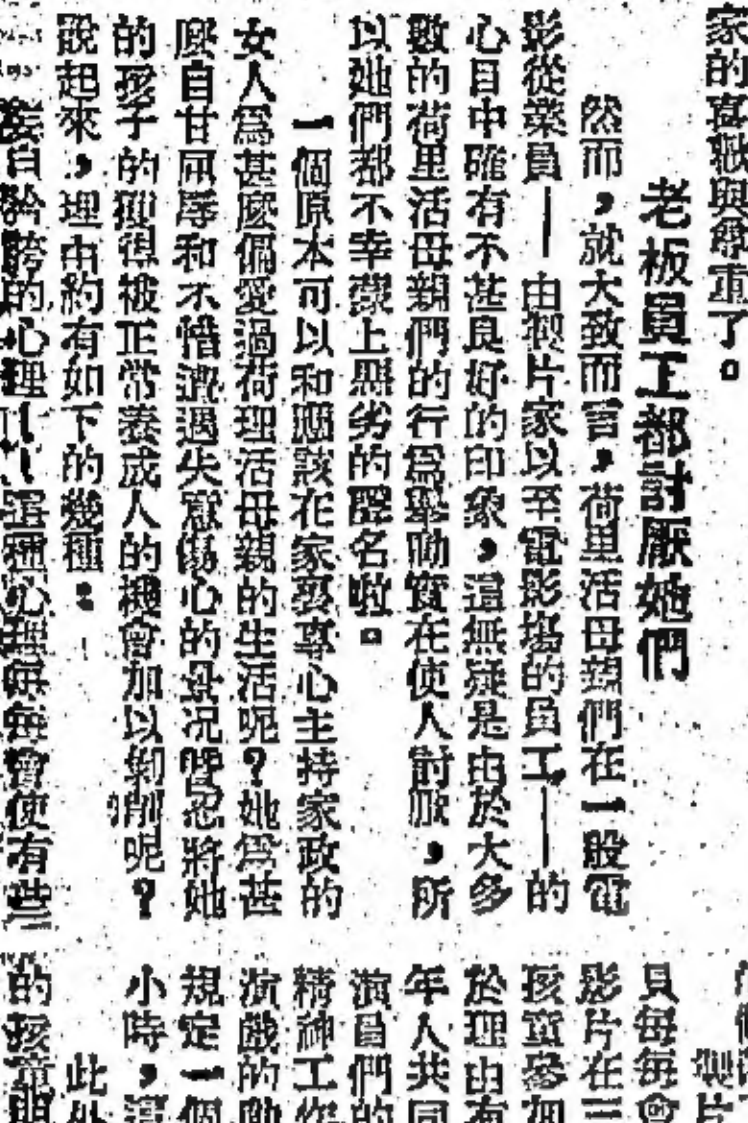 家的喜歡與尊重了。
老板員工都討厭她們
然而，就大致而言，荷里活母親們在一般電
影從業員——由製片家以至電影場的員工——的
心目中確有不甚良好的印象，這無疑是由於大多
數的荷里活母親們的行爲舉動實在使人討厭，所
以她們都不幸蒙上惡劣的聲名啦。
一個原本可以和應該在家裏專心主持家政的
女人爲甚麽偏愛過荷理活母親的生活呢？她爲甚
麽自甘屈辱和不惜遭遇失意傷心的景况暨忍將她
的孩子的獲得被正常養成人的機會加以剝削呢？
說起來，理由約有如下的幾種：
自矜誇的心理 這種心理每每會使有些
製片
員每每會
影片在三
孩童參加
於理由有
年人共同
演員們的
精神工作
演戲的
規定一個
小時，這
此外
的孩童